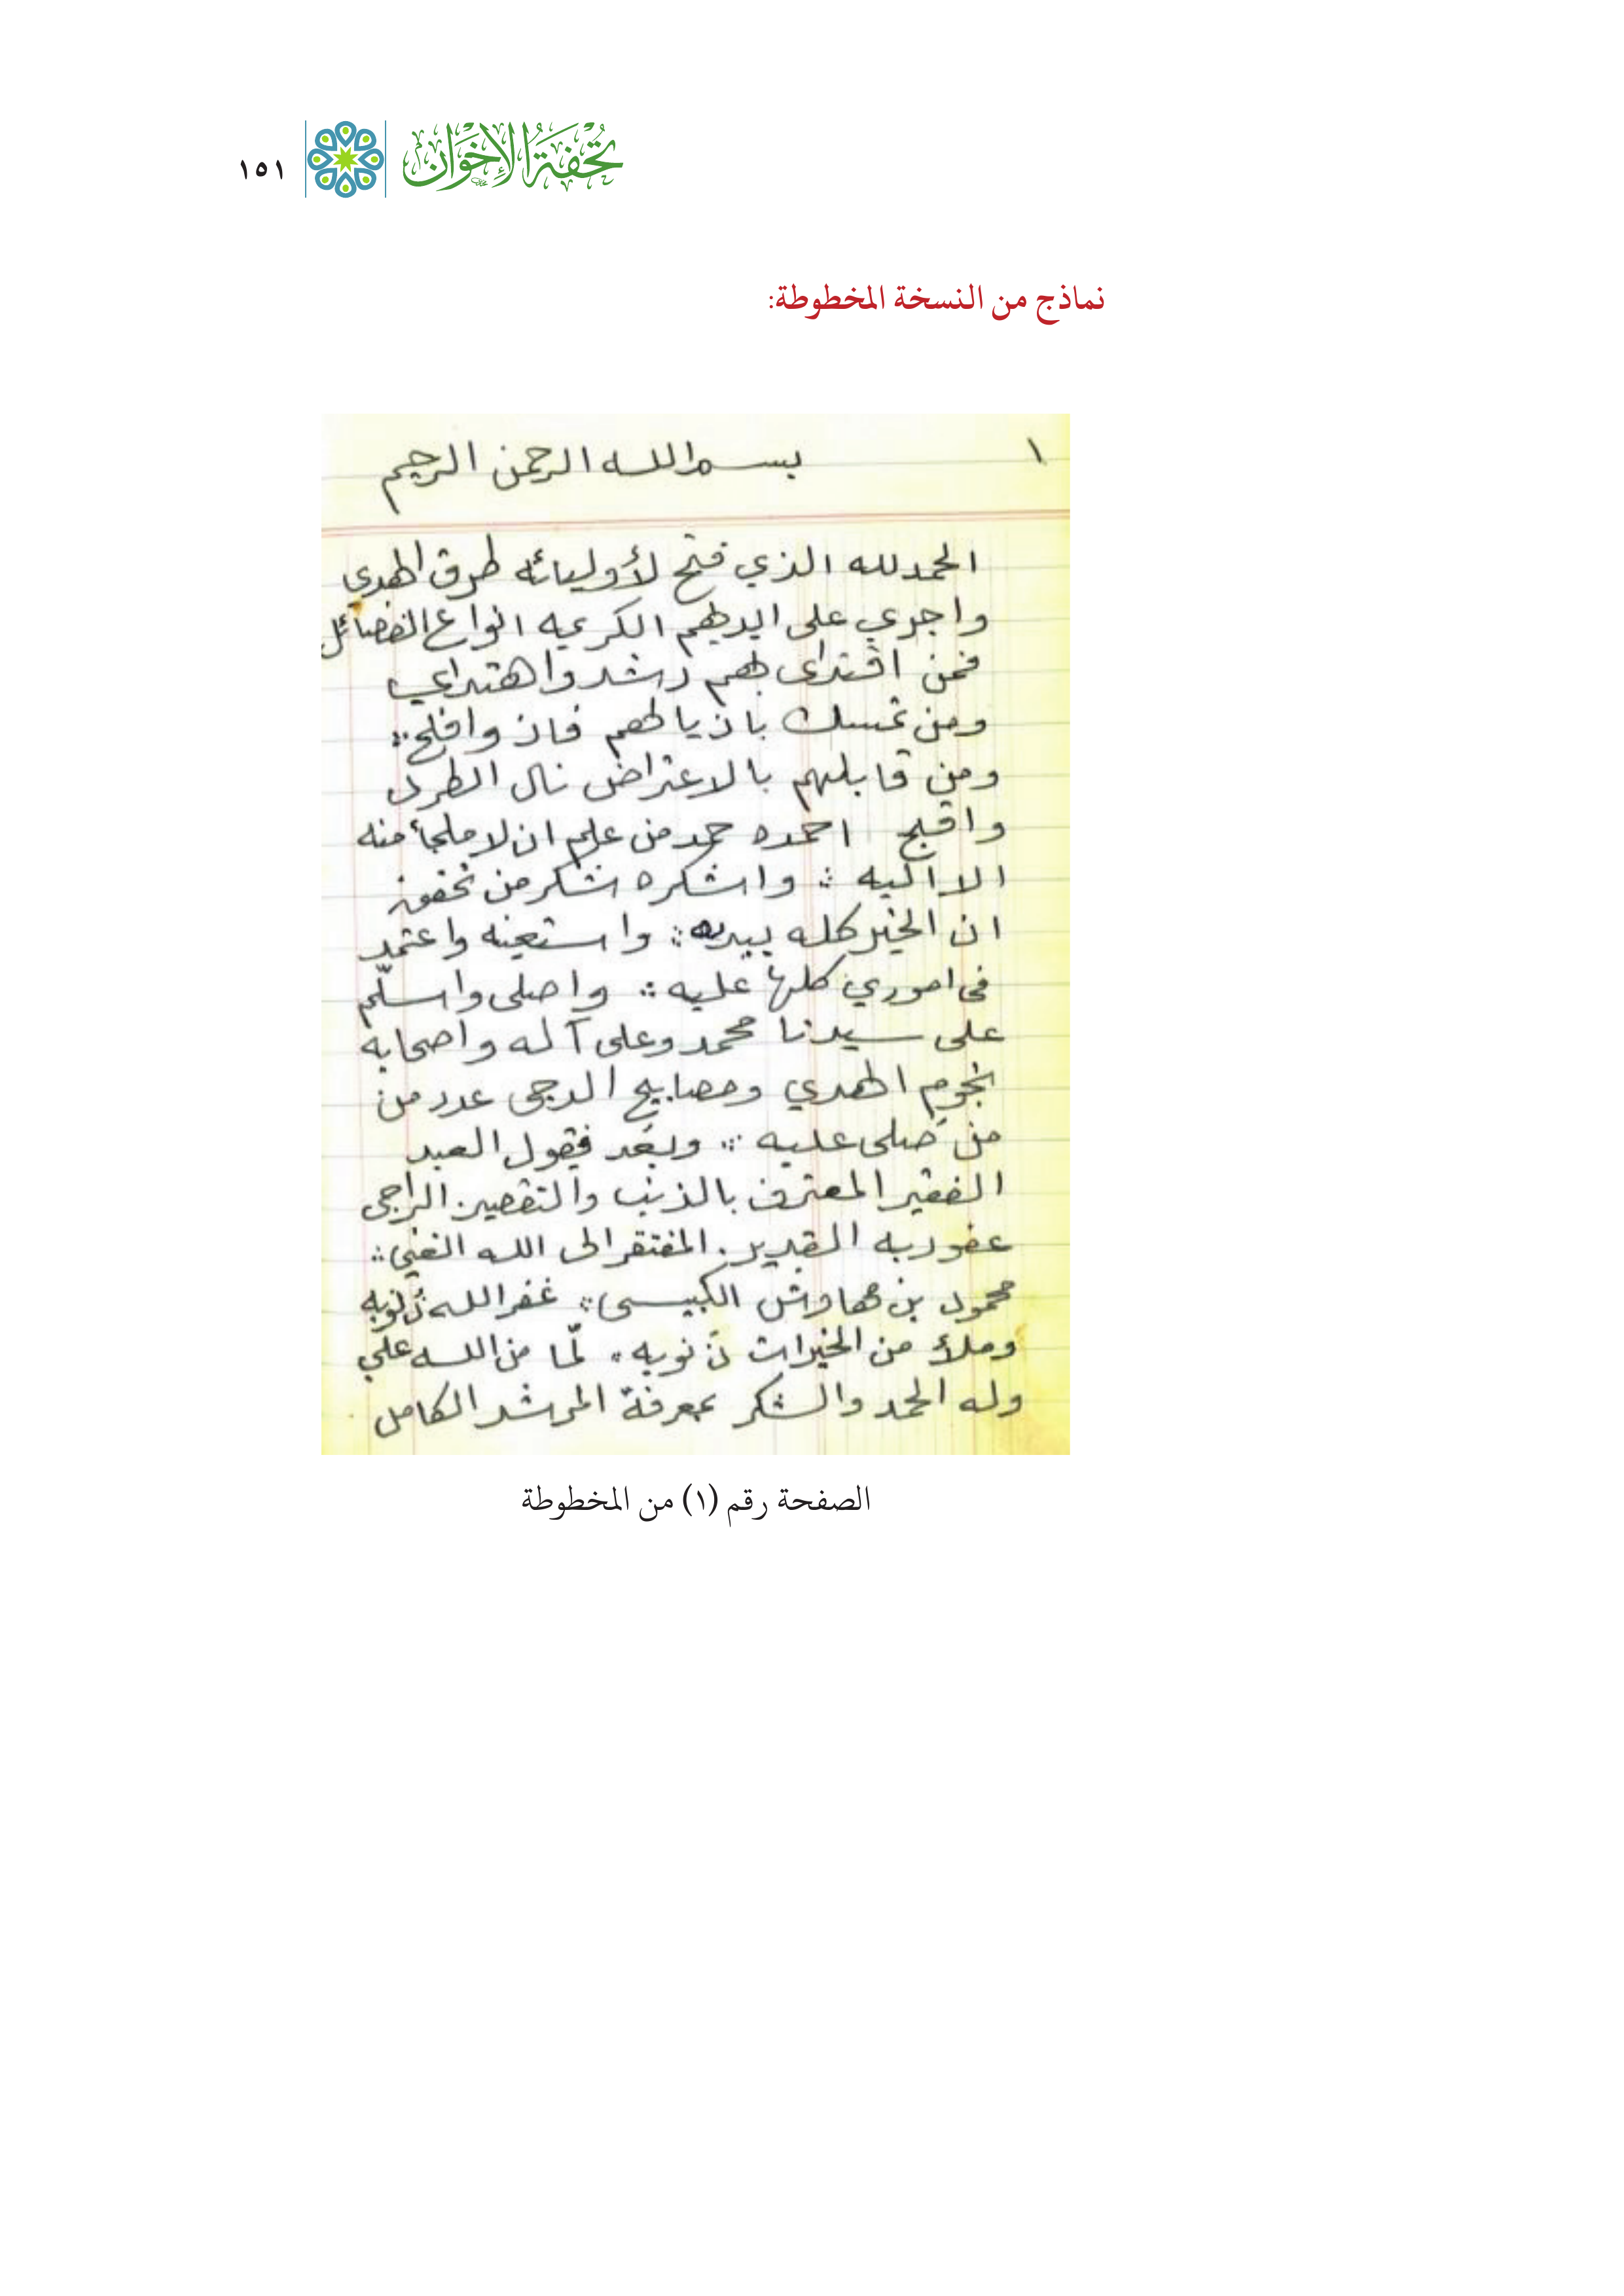 تُحْفَةُ الإِخْوَانِ
١٥١
نماذج من النسخة المخطوطة:
١
بسم الله الرحمن الرحيم
الحمدلله الذي فتح لأوليائه طرق الهدي
واجري على ايديهم الكريمه انواع الفضائل
فمن اقتدى بهم رشد واهتدي
ومن تمسك باذيالهم فاز وافلح
ومن قابلهم بالاعتراض نال الطرد
واقبح احمده حمد من علم ان لا ملجأ منه
الا اليه وا شكره شكر من تحقق
ان الخير كله بيده واستعينه واعتمد
في اموري كلها عليه واصلى واسلّم
على سيدنا محمد وعلى آله واصحابه
نجوم الهدي ومصابيح الدجى عدد من
من صلى عليه وبعد فيقول العبد
الفقير المعترف بالذنب والتقصير الراجى
عفو ربه القدير. المفتقر الى الله الغني
محمود بن مهاوش الكبيسى غفر الله ذنوبه
وملأ من الخيرات ذنوبه لمّا من الله علي
وله الحمد والشكر بمعرفة المرشد الكامل
الصفحة رقم (١) من المخطوطة